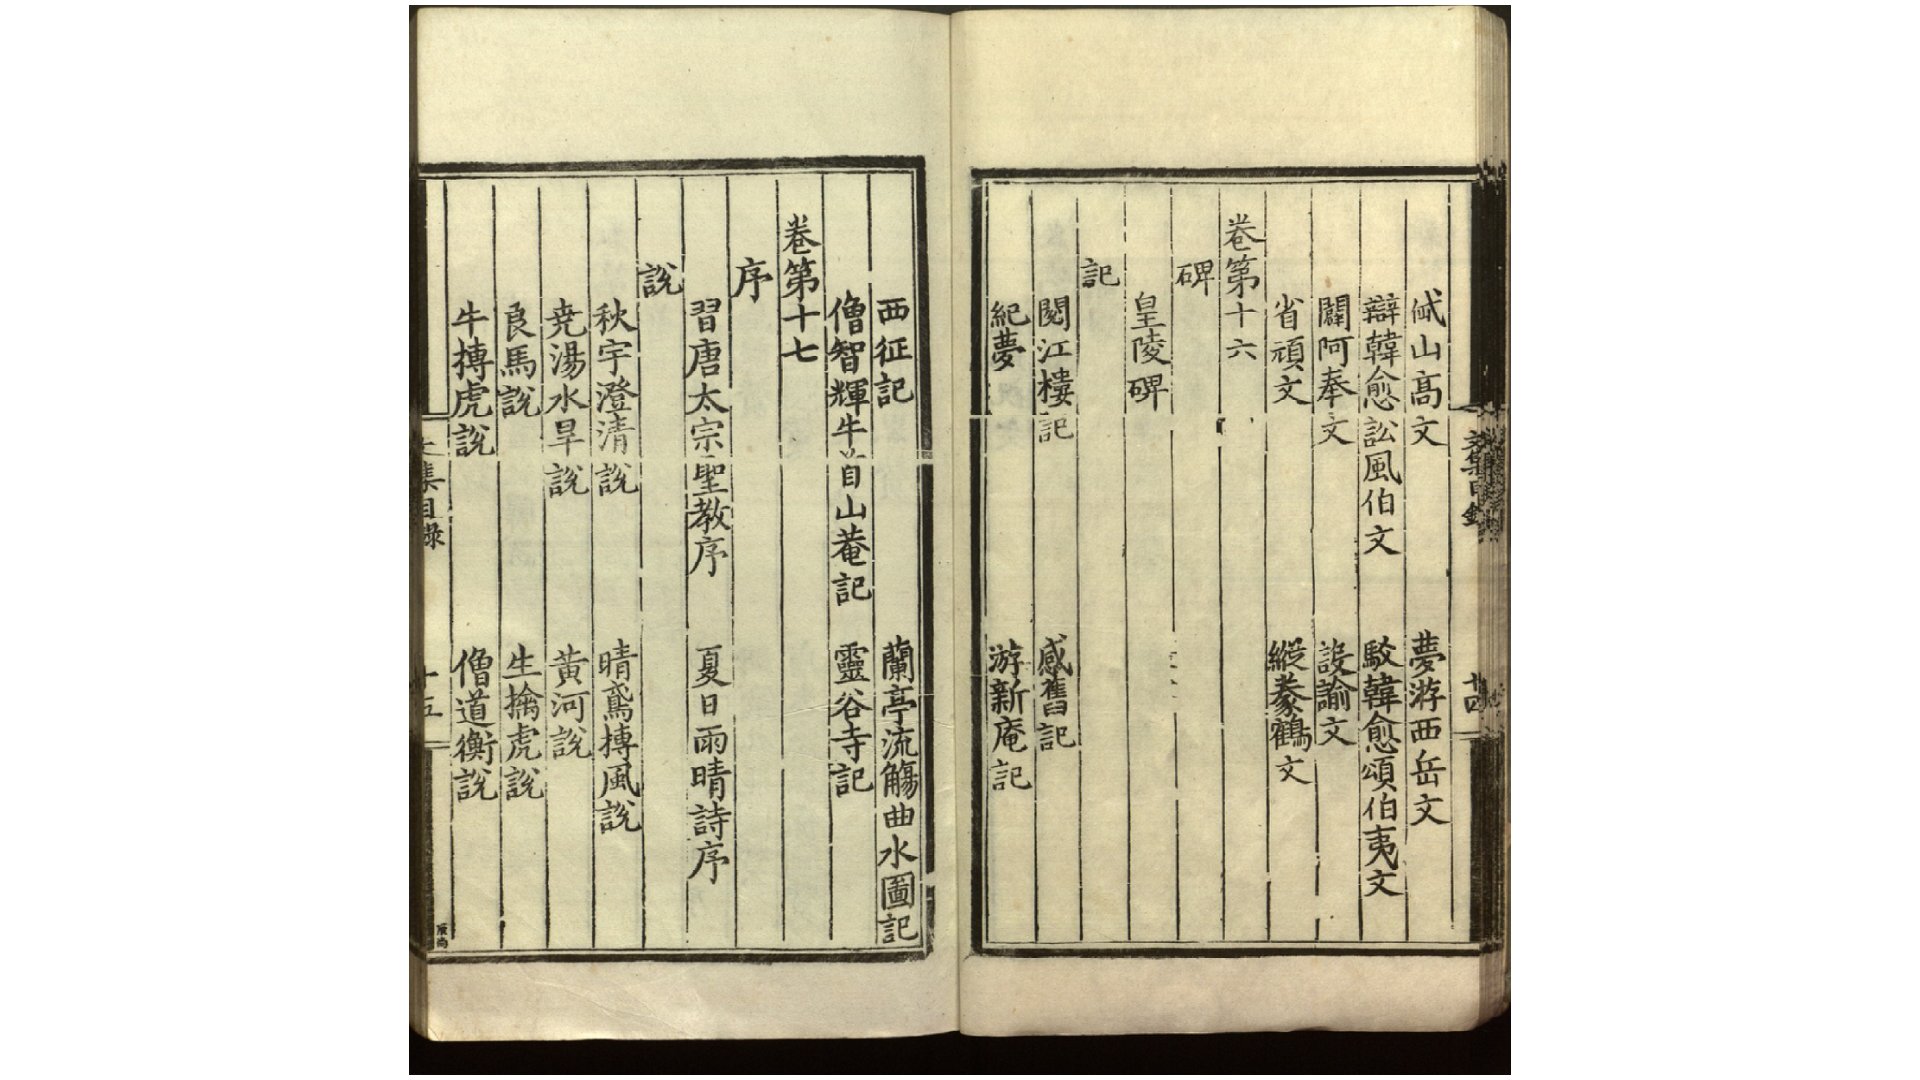 伾山高文　夢游西岳文
辯韓愈訟風伯文　駁韓愈頌伯夷文
闢阿奉文　設諭文
省頑文　縱豢鶴文
卷第十六
碑
皇陵碑
記
閱江樓記　感舊記
紀夢　游新庵記
西征記　蘭亭流觴曲水圖記
僧智輝牛首山菴記　靈谷寺記
卷第十七
序
習唐太宗聖教序　夏日雨晴詩序
說
秋宇澄清說　晴鳶摶風說
尭湯水旱說　黃河說
良馬說　生擒虎說
牛搏虎說　僧道衡說
文集目錄
十五